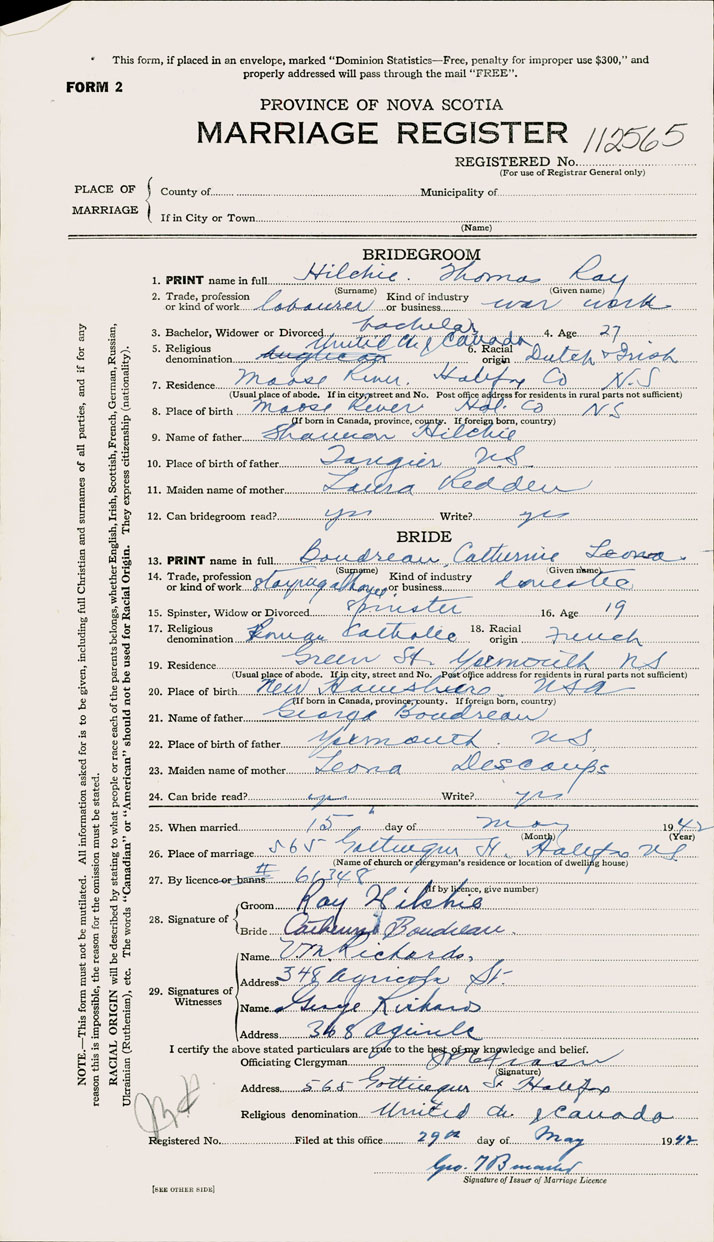 This form, if placed in an envelope, marked "Dominion Statistics—Free, penalty for improper use $300," and
properly addressed will pass through the mail "FREE".
FORM 2
PROVINCE OF NOVA SCOTIA
MARRIAGE REGISTER 112565
REGISTERED No.
(For use of Registrar General only)
PLACE OF MARRIAGE
County of Municipality of
If in City or Town
(Name)
BRIDEGROOM
1. PRINT name in full Hilchie Thomas Ray
(Surname) (Given name)
2. Trade, profession or kind of work labourer Kind of industry or business war work
3. Bachelor, Widower or Divorced bachelor 4. Age 27
5. Religious denomination Anglican United Ch of Canada 6. Racial origin Dutch & Irish
7. Residence Moose River. Halifax Co N.S
(Usual place of abode. If in city, street and No. Post office address for residents in rural parts not sufficient)
8. Place of birth Moose River Hal. Co NS
(If born in Canada, province, county. If foreign born, country)
9. Name of father Shannon Hilchie
10. Place of birth of father Tangier NS
11. Maiden name of mother Laura Redden
12. Can bridegroom read? yes Write? yes
BRIDE
13. PRINT name in full Boudreau, Catherine Leona
(Surname) (Given name)
14. Trade, profession or kind of work staying at home Kind of industry or business domestic
15. Spinster, Widow or Divorced spinster 16. Age 19
17. Religious denomination Roman Catholic 18. Racial origin French
19. Residence Green St. Yarmouth NS
(Usual place of abode. If in city, street and No. Post office address for residents in rural parts not sufficient)
20. Place of birth New Hampshire USA
(If born in Canada, province, county. If foreign born, country)
21. Name of father George Boudreau
22. Place of birth of father Yarmouth. NS
23. Maiden name of mother Leona Descoups
24. Can bride read? yes Write? yes
25. When married 15 day of May 1942
(Month) (Year)
26. Place of marriage 565 Gottingen St. Halifax NS
(Name of church or clergyman's residence or location of dwelling house)
27. By licence or banns # 61348
(If by licence, give number)
28. Signature of
Groom Ray Hilchie
Bride Catherine Boudreau.
29. Signatures of Witnesses
Name V.M. Richards,
Address 348 Agricola St.
Name George Richards
Address 348
I certify the above stated particulars are true to the best of my knowledge and belief.
Officiating Clergyman
(Signature)
Address 565 Gottingen St Halifax
Religious denomination United Ch of Canada
Registered No. Filed at this office 29th day of May 1942
Geo.
Signature of Issuer of Marriage Licence
[SEE OTHER SIDE]
NOTE.—This form must not be mutilated. All information asked for is to be given, including full Christian and surnames of all parties, and if for any
reason this is impossible, the reason for the omission must be stated.
RACIAL ORIGIN will be described by stating to what people or race each of the parents belongs, whether English, Irish, Scottish, French, German, Russian,
Ukrainian (Ruthenian), etc. The words "Canadian" or "American" should not be used for Racial Origin. They express citizenship (nationality).